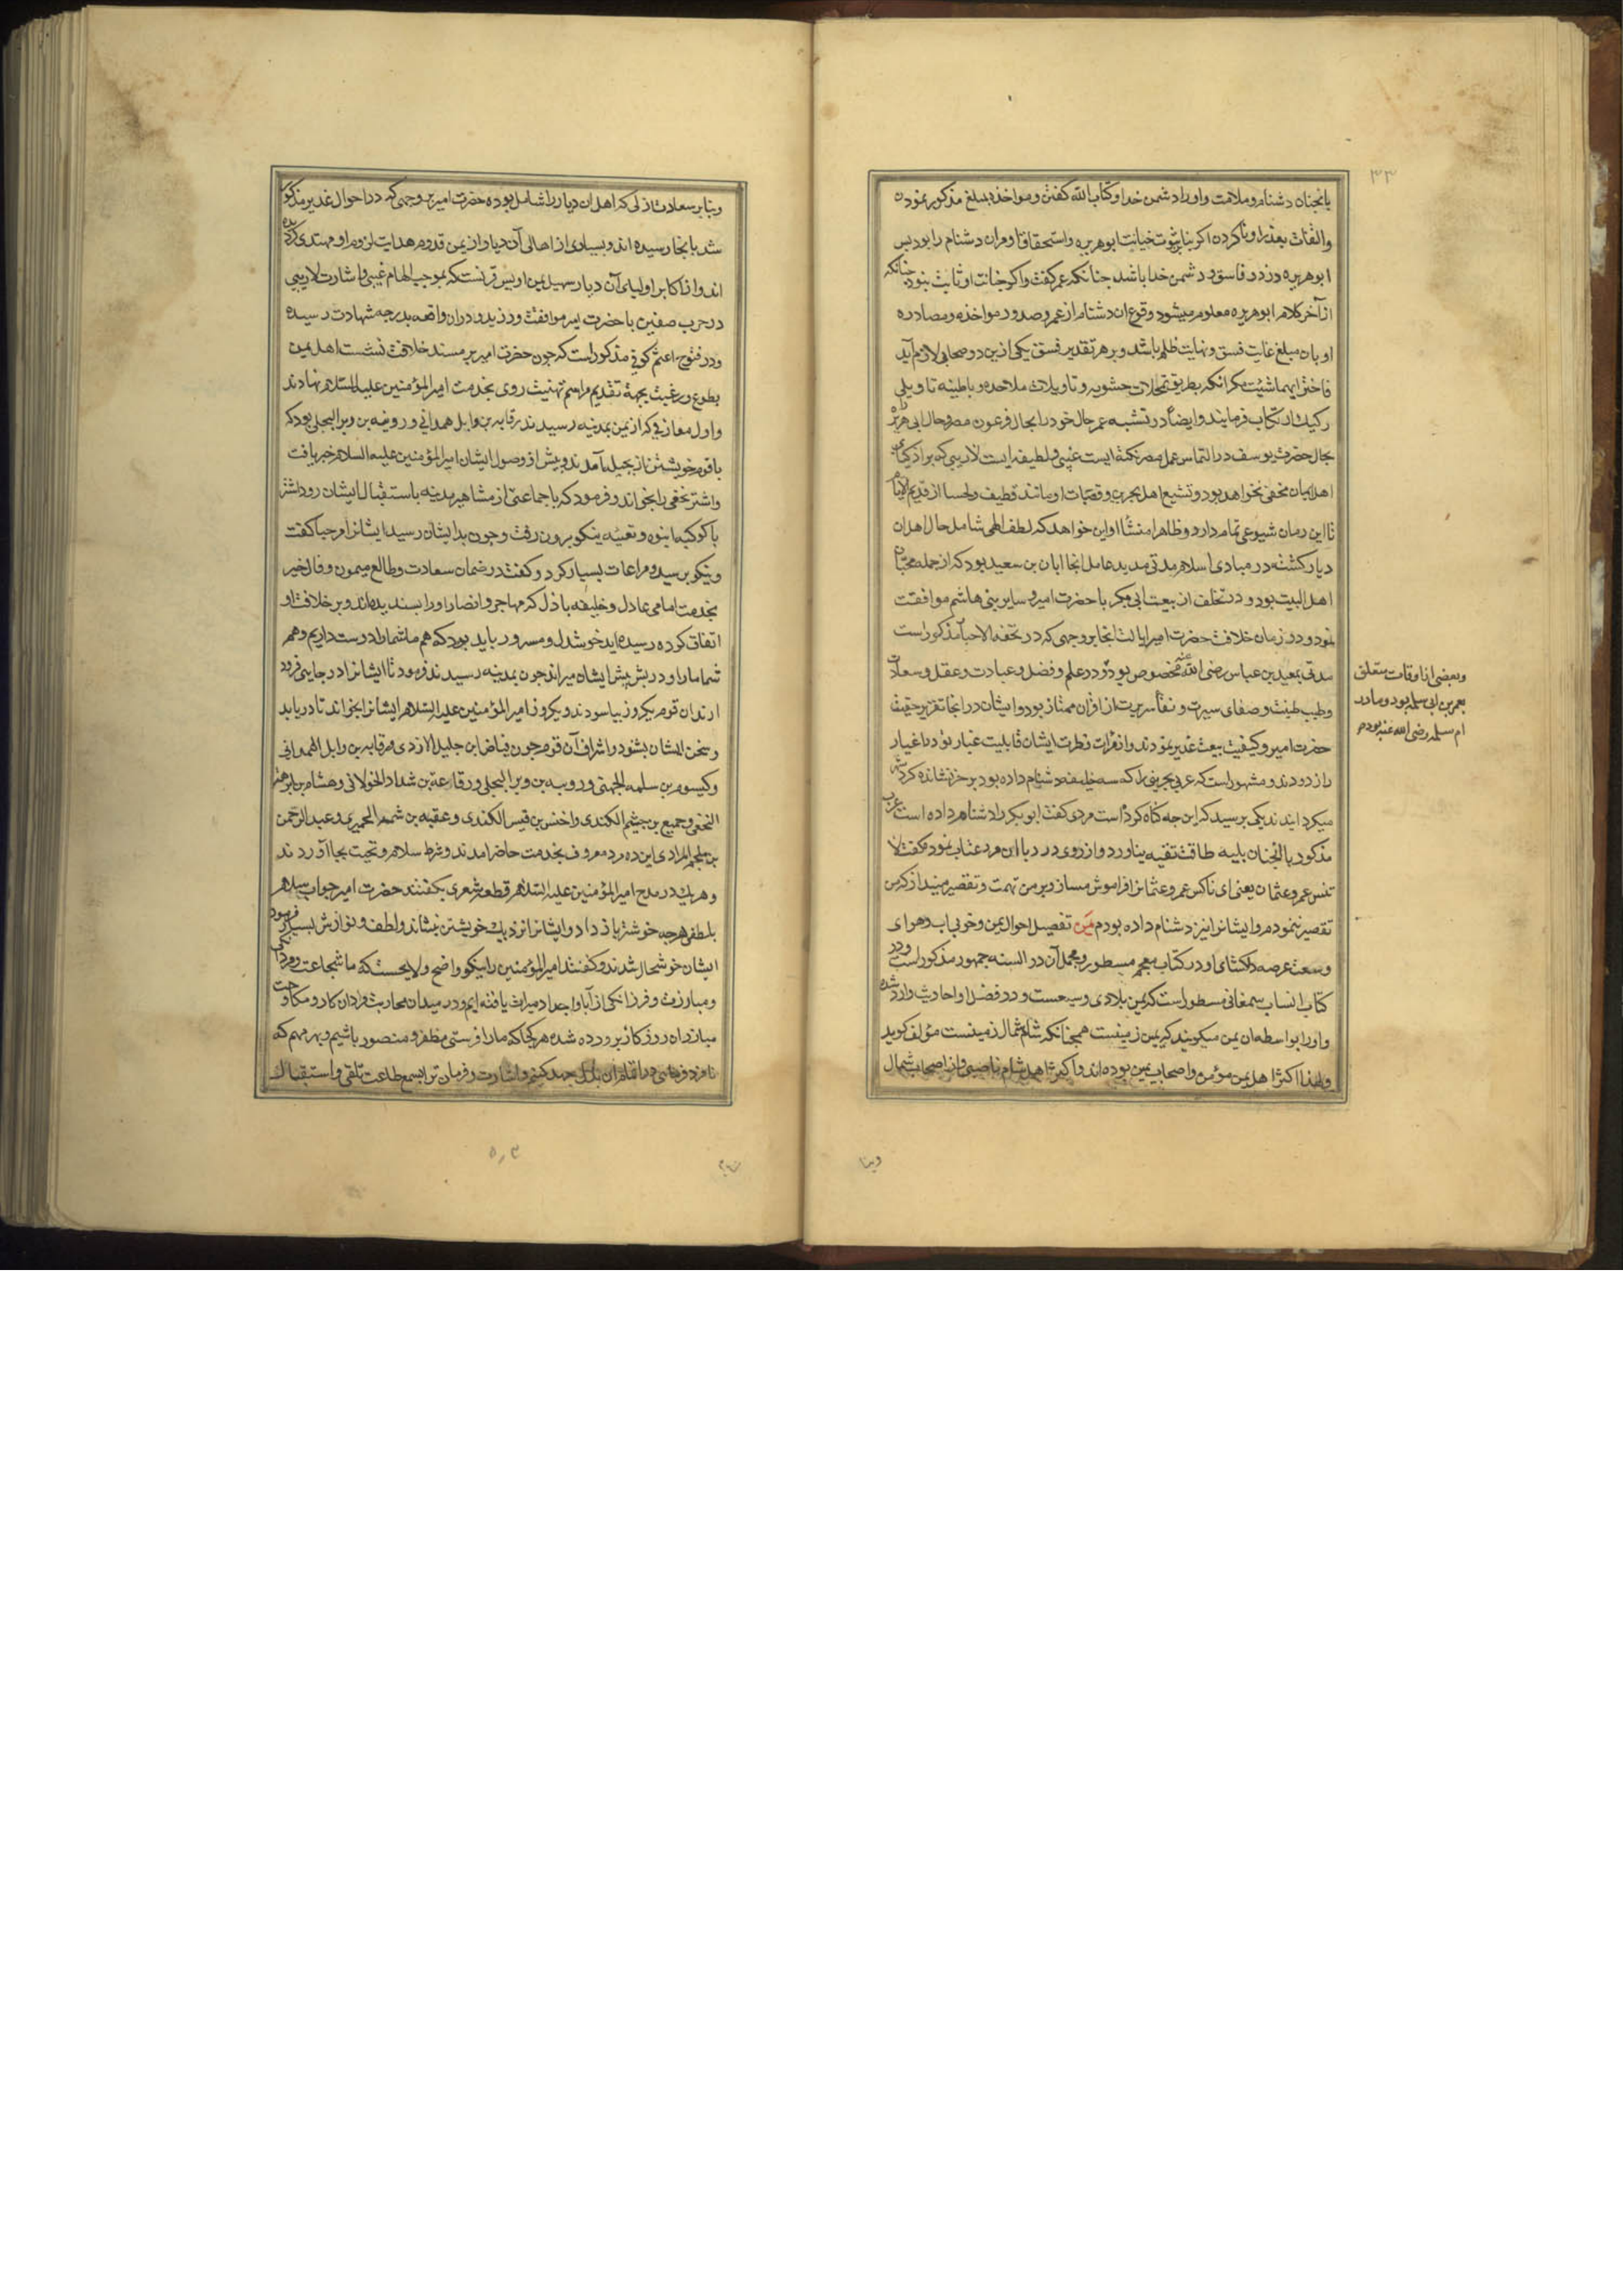 ۳۳
یا آنچنان دشنام و ملامت و او را دشمن خدا و کتاب الله کفتن و مواخذه بمبلغ مذکور نمودن
والتفات بعذر او ناکردن اکر بنابر ثبوت خیانت ابوهریره و استحقاق او مر ان دشنام را بود پس
ابوهریره دزد و فاسق و دشمن خدا باشد چنانکه عمر کفت و اکر خیانت او ثابت نبود چنانکه
از آخر کلام ابوهریره معلوم میشود وقوع ان دشنام از عمر و صدور مواخذه و مصادره
او بان مبلغ غایت فسق و نهایت ظلم باشد و بر هر تقدیر فسق یکی ازین دو صحابی لازم آید
فاختر ایهما شئت مکر انکه بطریق تمحلات حشویه و تاویلات ملاحده و باطنیه تاویلی
رکیک ارتکاب فرمایند و ایضا در تشبیه عمر حال خود را بحال فرعون مصر و حال ابی هریره
بحال حضرت یوسف در التماس عمل مصر نکته ایست غیبی و لطیفه ایست لاریبی که بر اذکیای
اهل ایمان مخفی نخواهد بود و تشیع اهل بحرین و قصبات او مانند قطیف و لحسا از قدیم الایام
تا این زمان شیوعی تمام دارد و ظاهرا منشا او این خواهد که لطف الهی شامل حال اهل ان
دیار کشته در مبادی اسلام مدتی مدید عامل انجا ابان بن سعید بود که از جمله محبان
اهل البیت بود و در تخلف از بیعت ابی بکر با حضرت امیر و سایر بنی هاشم موافقت
نمود و در زمان خلافت حضرت امیر ایالت انجا بر وجهی که در تحفة الاحبا مذکور است
مدتی بمعبد بن عباس رضی الله عنه مخصوص بود و در علم و فضل و عبادت و عقل و سعادت
و طیب طینت و صفای سیرت و نقاء سریرت از اقران ممتاز بود و ایشان در انجا تقریر حقیقت
حضرت امیر و کیفیت بیعت غدیر نمودند و از مرات فطرت ایشان قابلیت غبار تودد اغیار
را زدودند و مشهور است که عربی بحرینی را که سه خلیفه دشنام داده بود بر خر نشانده کرد شهر
میکردانیدند یکی پرسید که این چه کناه کرده است مردی کفت ابوبکر را دشنام داده است عرب
مذکور با انچنان بلیه طاقت تقیه نیاورد و از روی درد با ان مرد عتاب نمود و کفت لا
تنس عمر و عثمان یعنی ای ناکس عمر و عثمانرا فراموش مساز و بر من تهمت و تقصیر میندازکه من
تقصیر ننموده ام و ایشانرا نیز دشنام داده بودم یمن تفصیل احوال یمن و خوبی اب و هوای
و وسعت عرصه دلکشای او در کتاب معجم مسطور و مجمل آن در السنه جمهور مذکور است و در
کتاب انساب سمعانی مسطور است که یمن بلادی وسیعست و در فضل او احادیث وارد شده
و او را بواسطه ان یمن میکویند که یمین زمینست همچنانکه شام شمال زمینست مؤلف کوید
و لهذا اکثر اهل یمن مؤمن و اصحاب یمین بوده اند و اکثر اهل شام ناصبی و از اصحاب شمال
و بعضی از اوقات متعلق
بعمر بن ابی سلمه بود و مادر
ام سلمه رضی الله عنها بود
وبنا
و بنابر سعادت ازلی که اهل ان دیار را شامل بوده حضرت امیر بر وجهی که در احوال غدیر مذکور
شد بانجا رسیده اند و بسیاری از اهالی آن دیار از یمن قدوم هدایت لزوم او مهتدی کردیده
اند و از اکابر اولیای آن دیار سهیل یمن اویس قرنست که بموجب الهام غیبی و اشارت لاریبی
در حرب صفین با حضرت امیر موافقت ورزید و دران واقعه بدرجه شهادت رسیده
و در فتوح اعثم کوفی مذکور است که چون حضرت امیر بر مسند خلافت نشست اهل یمن
بطوع و رغبت بجهة تقدیم مراسم تهنیت روی بخدمت امیر المؤمنین علیه السلام نهادند
و اول معارفی که از یمن بمدینه رسیدند رقابه بن وابل همدانی و رویبه بن وبر البجلی بود که
با قوم خویشتن از بجیله آمدند و پیش از وصول ایشان امیر المؤمنین علیه السلام خبر یافت
و اشتر نخعی را بخواند و فرمود که با جماعتی از مشاهیر مدینه باستقبال ایشان رود اشتر
با کوکبه انبوه و تعبیه نیکو بیرون رفت و چون بدایشان رسید ایشانرا مرحبا کفت
و نیکو پرسید و مراعات بسیار کرد و کفت در ضمان سعادت و طالع میمون و فال خیر
بخدمت امامی عادل و خلیفه باذل که مهاجر و انصار او را پسندیده اند و بر خلافت او
اتفاق کرده رسیده اید خوشدل و مسرور باید بود که هم ما شما را دوست داریم و هم
شما ما را و در پیش ایشان میراند چون بمدینه رسیدند فرمود تا ایشانرا در جایی فرود
ارند ان قوم یکروز بیاسودند دیکر روز امیر المؤمنین علیه السلام ایشانرا بخواند تا دریابد
و سخن ایشان بشنود و اشراف آن قوم چون فیاض بن جلیل الازدی و رقابه بن وابل الهمدانی
و کیسوم بن سلمه الجهنی و رویبه بن وبر البجلی و رقاعة بن شداد الخولانی و هشام بن ابرهه
النخعی و جمیع بن جیثم الکندی و اخنس بن قیس الکندی و عقبه بن شمعر الحمیری و عبد الرحمن
بن ملجم المرادی این ده مرد معروف بخدمت حاضر امدند و شرط سلام و تحیت بجا آوردند
و هر یک در مدح امیر المؤمنین علیه السلام قطعه شعری بکفتند حضرت امیر جواب سلام
بلطفی هر چه خوشتر باز داد و ایشانرا نزدیک خویشتن بنشاند و لطف و نوازش بسیار فرمود
ایشان خوشحال شدند و کفتند امیر المؤمنین را نیکو واضح و لایحست که ما شجاعت و مردانکی
و مبارزت و فرزانکی از آبا و اجداد میراث یافته ایم و در میدان محاربت و اردان کار و مکاوحت
مبارزان روزکار پرورده شده هر کجا که ما را فرستی مظفر و منصور باشیم و بهر مهم که
نامزد فرمایی در اتمام ان بذل جهد کنیم و اشارت و فرمان ترا بسمع طاعت تلقی و استقبال